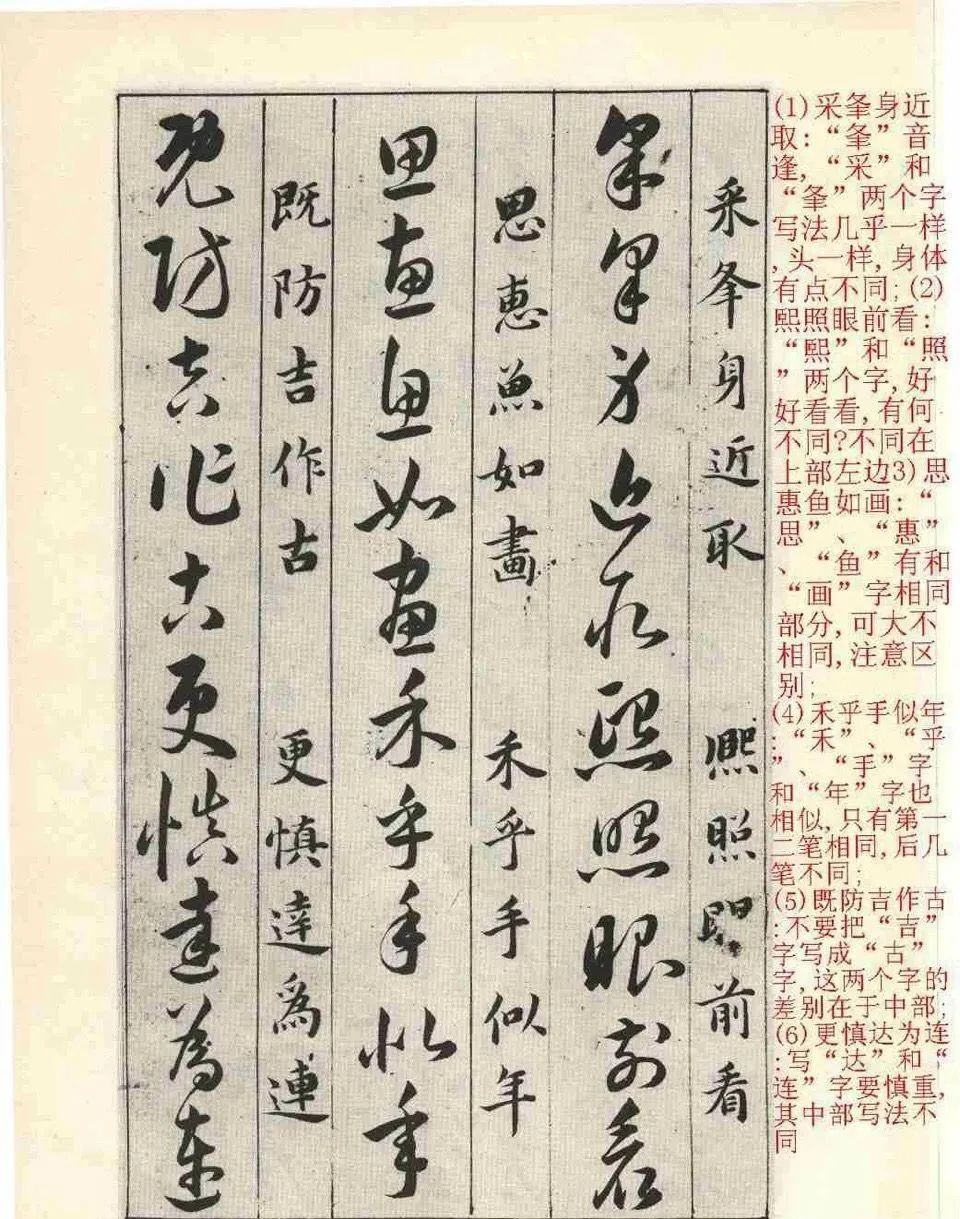 (1)采夆身近
取:“夆”音
逢,“采”和
“夆”两个字
写法几乎一样
,头一样,身体
有点不同;(2)
熙照眼前看:
“熙”和“照
”两个字,好
好看看,有何
不同?不同在
上部左边3)思
惠鱼如画:“
思”、“惠”
、“鱼”有和
“画”字相同
部分,可大不
相同,注意区
别;
(4)禾乎手似年
:“禾”、“乎
”、“手”字
和“年”字也
相似,只有第一
二笔相同,后几
笔不同;
(5)既防吉作古
:不要把“吉”
字写成“古”
字,这两个字的
差别在于中部;
(6)更慎达为连
:写“达”和“
连”字要慎重,
其中部写法不
同
采夆身近取 熙照眼前看
采夆身近取熙照眼前看
思惠魚如畫 禾乎手似年
思惠魚如畫禾乎手似年
既防吉作古 更慎達爲連
既防吉作古更慎達為連